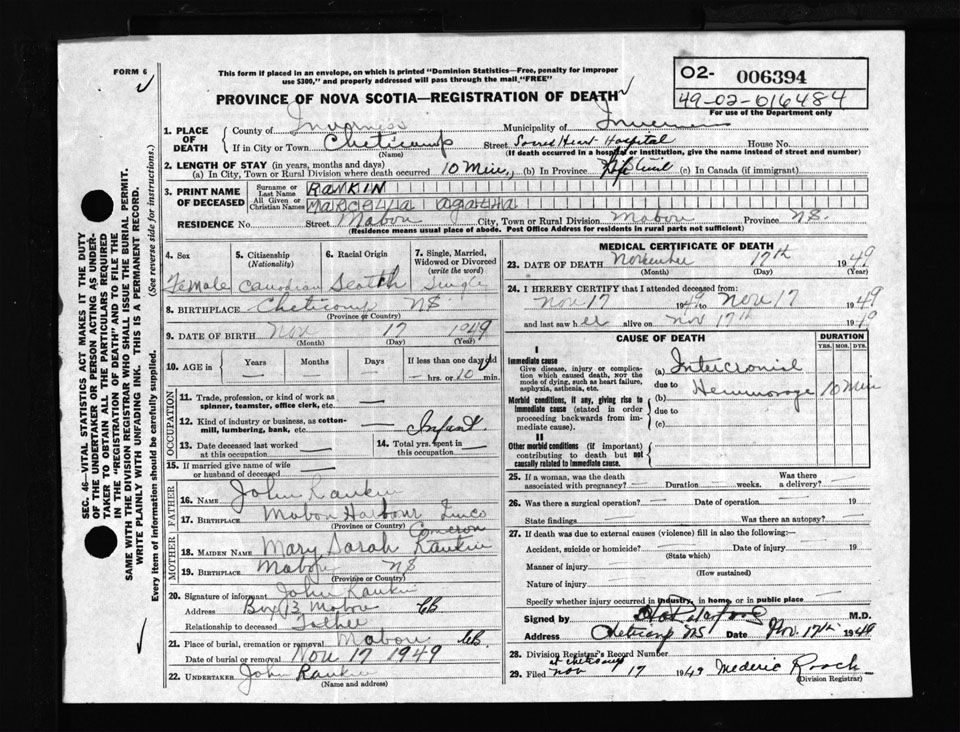 FORM 6
This form if placed in an envelope, on which is printed "Dominion Statistics—Free, penalty for improper
use $300," and properly addressed will pass through the mail "FREE"
O2- 006394
49-02-016484
For use of the Department only
PROVINCE OF NOVA SCOTIA—REGISTRATION OF DEATH
1. PLACE OF DEATH
County of Inverness Municipality of Inverness
If in City or Town Cheticamp Street Sacred Heart Hospital House No.
(Name) (If death occurred in a hospital or institution, give the name instead of street and number)
2. LENGTH OF STAY (in years, months and days)
(a) In City, Town or Rural Division where death occurred 10 Min., (b) In Province Life time (c) In Canada (if immigrant)
3. PRINT NAME OF DECEASED
Surname or Last Name RANKIN
All Given or Christian Names Marcella Agatha
RESIDENCE No. Street Mabou City, Town or Rural Division Mabou Province NS.
(Residence means usual place of abode. Post Office Address for residents in rural parts not sufficient)
4. Sex Female
5. Citizenship (Nationality) Canadian
6. Racial Origin Scotch
7. Single, Married, Widowed or Divorced (write the word) Single
8. BIRTHPLACE Cheticamp NS
(Province or Country)
9. DATE OF BIRTH Nov 17 1949
(Month) (Day) (Year)
10. AGE in Years — Months — Days — If less than one day old
— hrs. or 10 min.
OCCUPATION
11. Trade, profession, or kind of work as
spinner, teamster, office clerk, etc. —
12. Kind of industry or business, as cotton-
mill, lumbering, bank, etc. Infant
13. Date deceased last worked
at this occupation —
14. Total yrs. spent in
this occupation —
15. If married give name of wife
or husband of deceased —
FATHER
16. NAME John Rankin
17. BIRTHPLACE Mabou Harbour
(Province or Country)
MOTHER
Cameron
18. MAIDEN NAME Mary Sarah Rankin
19. BIRTHPLACE Mabou NS
(Province or Country)
20. Signature of informant John Rankin
Address Box 13 Mabou CB
21. Relationship to deceased Father
21. Place of burial, cremation or removal Mabou CB
Date of burial or removal Nov 17 1949
22. UNDERTAKER John Rankin
(Name and address)
MEDICAL CERTIFICATE OF DEATH
23. DATE OF DEATH November 17th 1949
(Month) (Day) (Year)
24. I HEREBY CERTIFY that I attended deceased from:
Nov 17 1949 to Nov 17 1949
and last saw her alive on Nov 17th 1949
CAUSE OF DEATH
DURATION
YRS. MOS. DYS.
I
Immediate cause
Give disease, injury or complica-
tion which caused death, not the
mode of dying, such as heart failure,
asphyxia, asthenia, etc.
(a) Intercranial
due to
Morbid conditions, if any, giving rise to
immediate cause (stated in order
proceeding backwards from im-
mediate cause).
(b) Hemmorage 10 Min
due to
(c)
II
Other morbid conditions (if important)
contributing to death but not
causally related to immediate cause.
25. If a woman, was the death
associated with pregnancy? — Duration — weeks. Was there
a delivery? —
26. Was there a surgical operation? — Date of operation — 19
State findings — Was there an autopsy? —
27. If death was due to external causes (violence) fill in also the following:—
Accident, suicide or homicide? — Date of injury — 19
(State which)
Manner of injury —
(How sustained)
Nature of injury —
Specify whether injury occurred in industry, in home, or in public place —
Signed by M.D.
Address Cheticamp NS Date Nov. 17th 1949
28. Division Registrar's Record Number
at Cheticamp
29. Filed Nov 17 1949 Mederic Roach
(Division Registrar)
SEC. 46—VITAL STATISTICS ACT MAKES IT THE DUTY
OF THE UNDERTAKER OR PERSON ACTING AS UNDER-
TAKER TO OBTAIN ALL THE PARTICULARS REQUIRED
IN THE "REGISTRATION OF DEATH" AND TO FILE THE
SAME WITH THE DIVISION REGISTRAR WHO SHALL ISSUE THE BURIAL PERMIT.
WRITE PLAINLY WITH UNFADING INK. THIS IS A PERMANENT RECORD.
Every item of information should be carefully supplied. (See reverse side for instructions.)